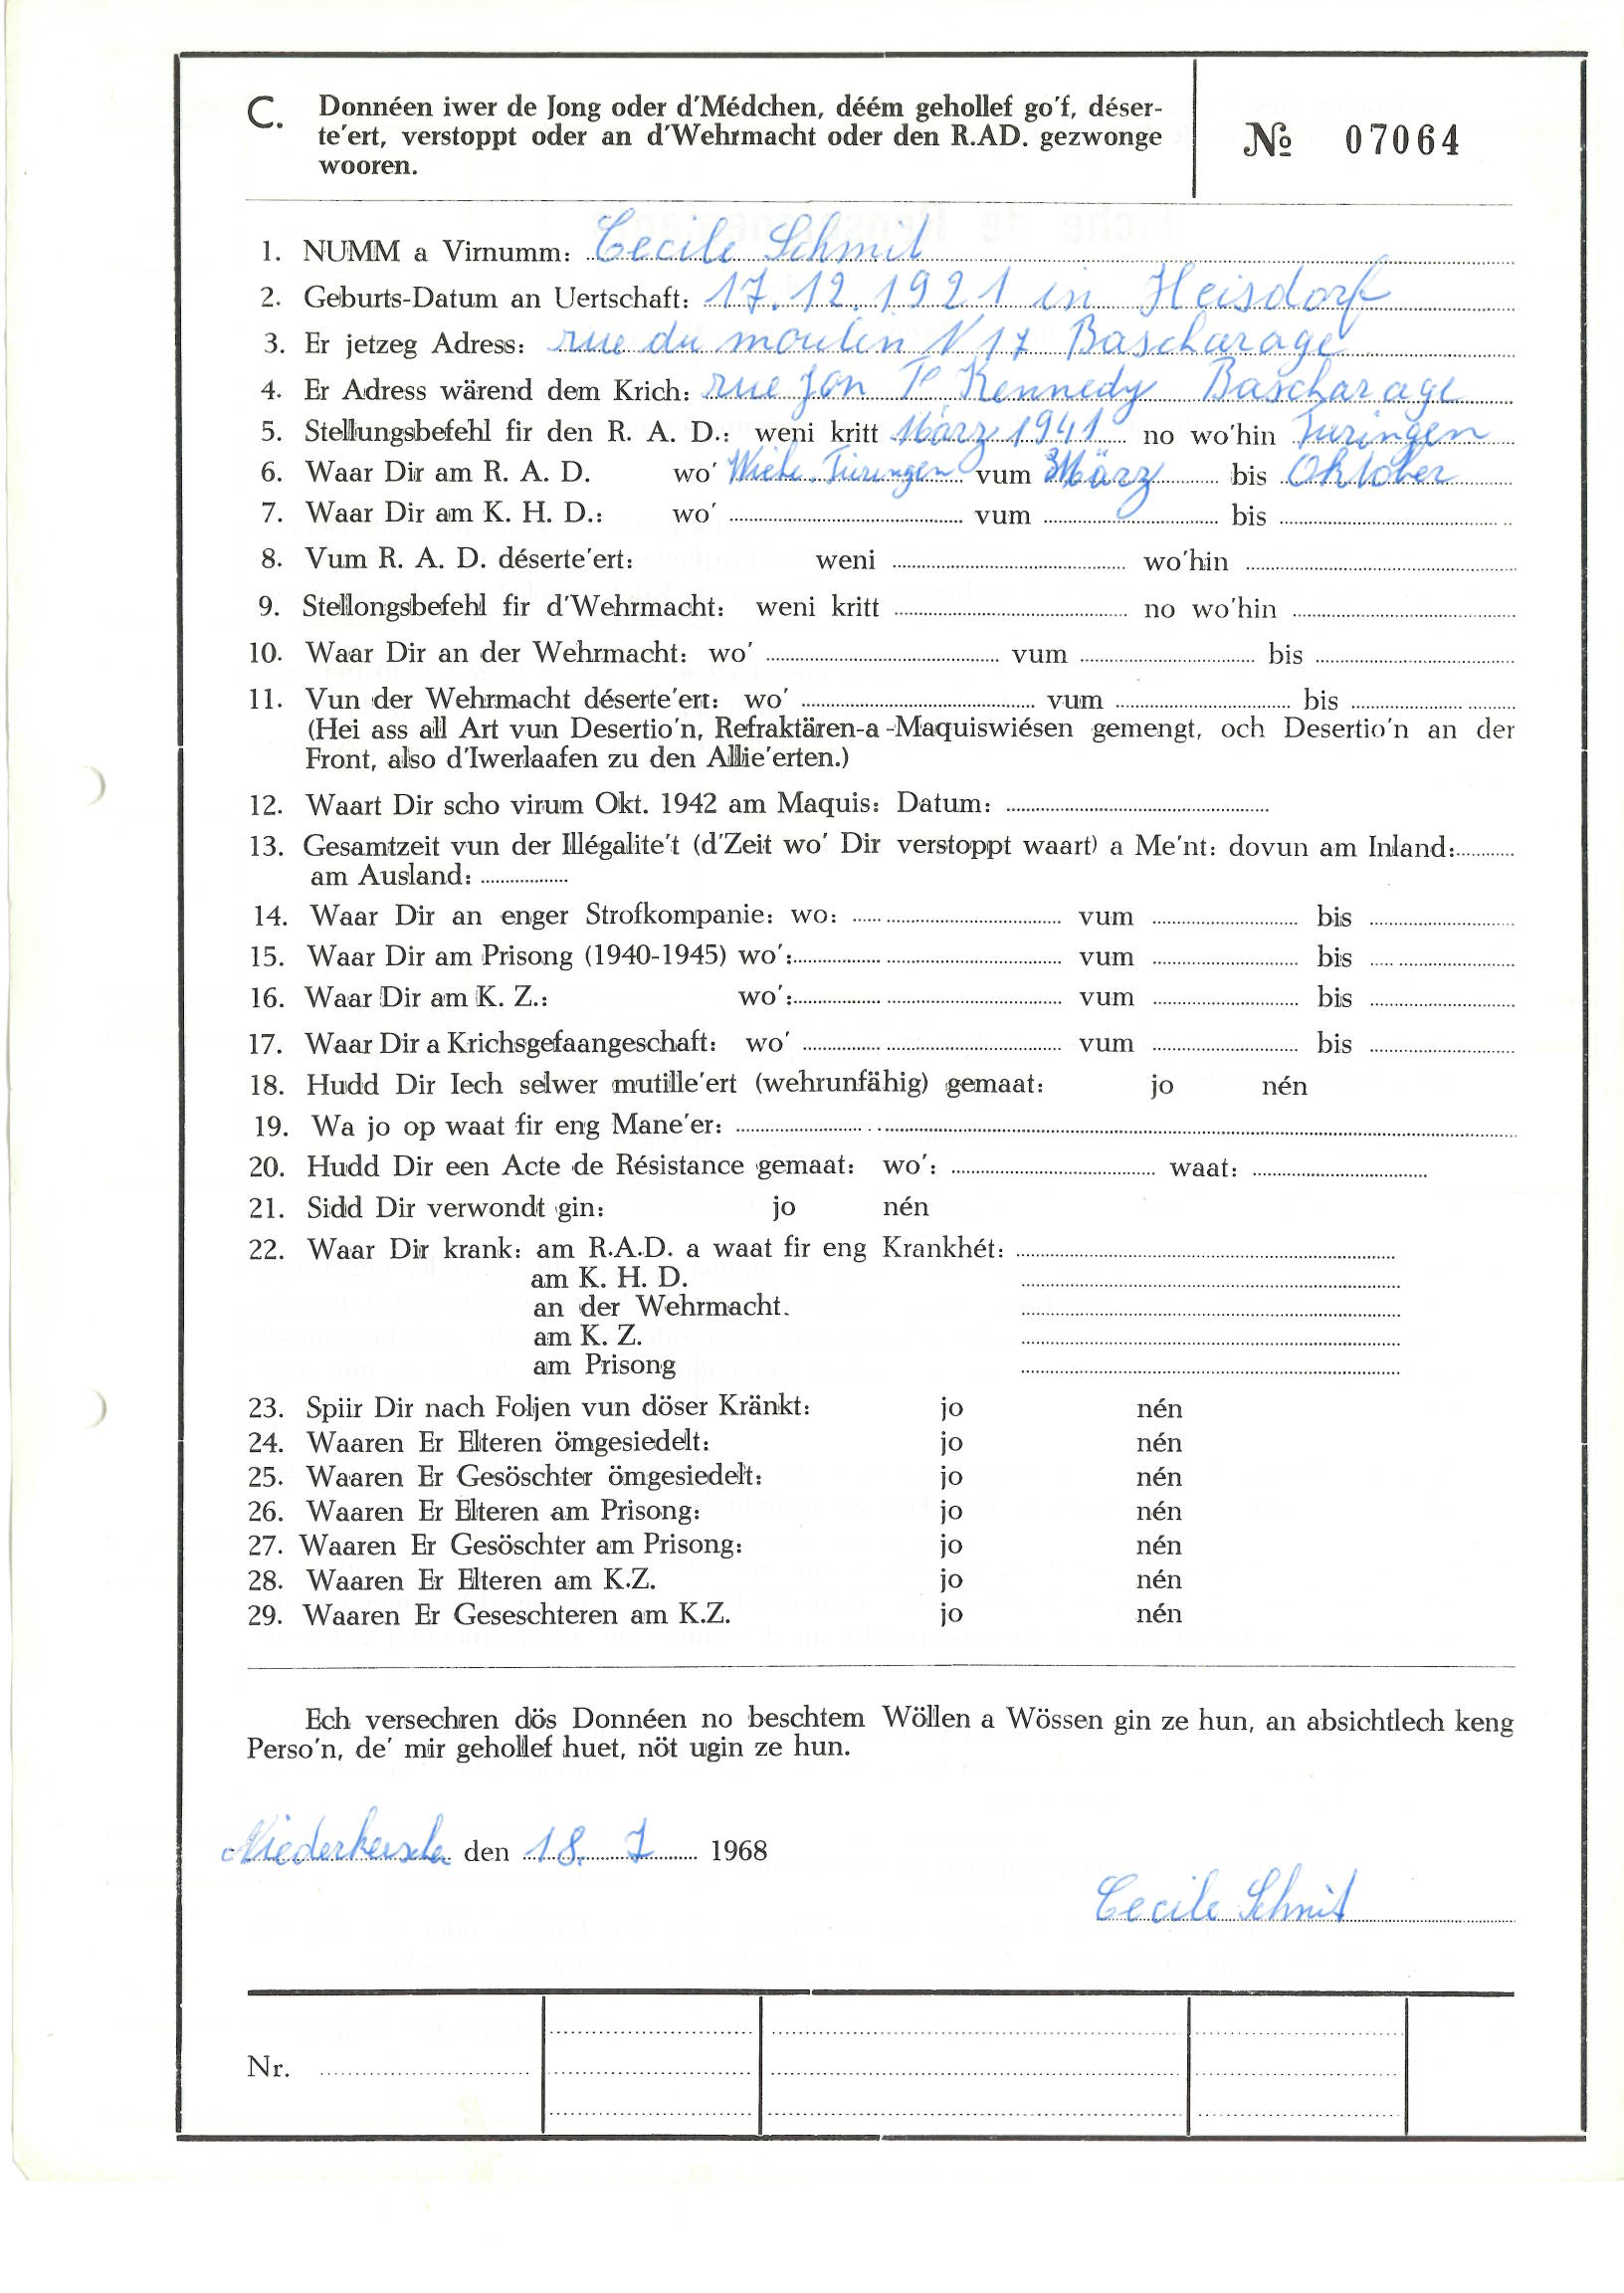 C. Donnéen iwer de Jong oder d'Médchen, déém gehollef go'f, déser-
te'ert, verstoppt oder an d'Wehrmacht oder den R.AD. gezwonge
wooren.
№ 07064
1. NUMM a Virnumm: Cecile Schmit
2. Geburts-Datum an Uertschaft: 17.12.1921 in Heisdorf
3. Er jetzeg Adress: rue du moulin N 17 Bascharage
4. Er Adress wärend dem Krich: rue Jon P Kennedy Bascharage
5. Stellungsbefehl fir den R. A. D.: weni kritt März 1941 no wo'hin Turingen
6. Waar Dir am R. A. D. wo' Wiehe. Türingen vum März bis Oktober
7. Waar Dir am K. H. D.: wo' vum bis
8. Vum R. A. D. déserte'ert: weni wo'hin
9. Stellongsbefehl fir d'Wehrmacht: weni kritt no wo'hin
10. Waar Dir an der Wehrmacht: wo' vum bis
11. Vun der Wehrmacht déserte'ert: wo' vum bis
(Hei ass all Art vun Desertio'n, Refraktären-a-Maquiswiésen gemengt, och Desertio'n an der
Front, also d'Iwerlaafen zu den Allie'erten.)
12. Waart Dir scho virum Okt. 1942 am Maquis: Datum:
13. Gesamtzeit vun der Illégalite't (d'Zeit wo' Dir verstoppt waart) a Me'nt: dovun am Inland:
am Ausland:
14. Waar Dir an enger Strofkompanie: wo: vum bis
15. Waar Dir am Prisong (1940-1945) wo': vum bis
16. Waar Dir am K. Z.: wo': vum bis
17. Waar Dir a Krichsgefaangeschaft: wo' vum bis
18. Hudd Dir Iech selwer mutille'ert (wehrunfähig) gemaat: jo nén
19. Wa jo op waat fir eng Mane'er:
20. Hudd Dir een Acte de Résistance gemaat: wo': waat:
21. Sidd Dir verwondt gin: jo nén
22. Waar Dir krank: am R.A.D. a waat fir eng Krankhét:
am K. H. D.
an der Wehrmacht.
am K. Z.
am Prisong
23. Spiir Dir nach Foljen vun döser Kränkt: jo nén
24. Waaren Er Elteren ömgesiedelt: jo nén
25. Waaren Er Gesöschter ömgesiedelt: jo nén
26. Waaren Er Elteren am Prisong: jo nén
27. Waaren Er Gesöschter am Prisong: jo nén
28. Waaren Er Elteren am K.Z. jo nén
29. Waaren Er Geseschteren am K.Z. jo nén
Ech versechren dös Donnéen no beschtem Wöllen a Wössen gin ze hun, an absichtlech keng
Perso'n, de' mir gehollef huet, nöt ugin ze hun.
den 18. 7 1968
Cecile Schmit
Nr.